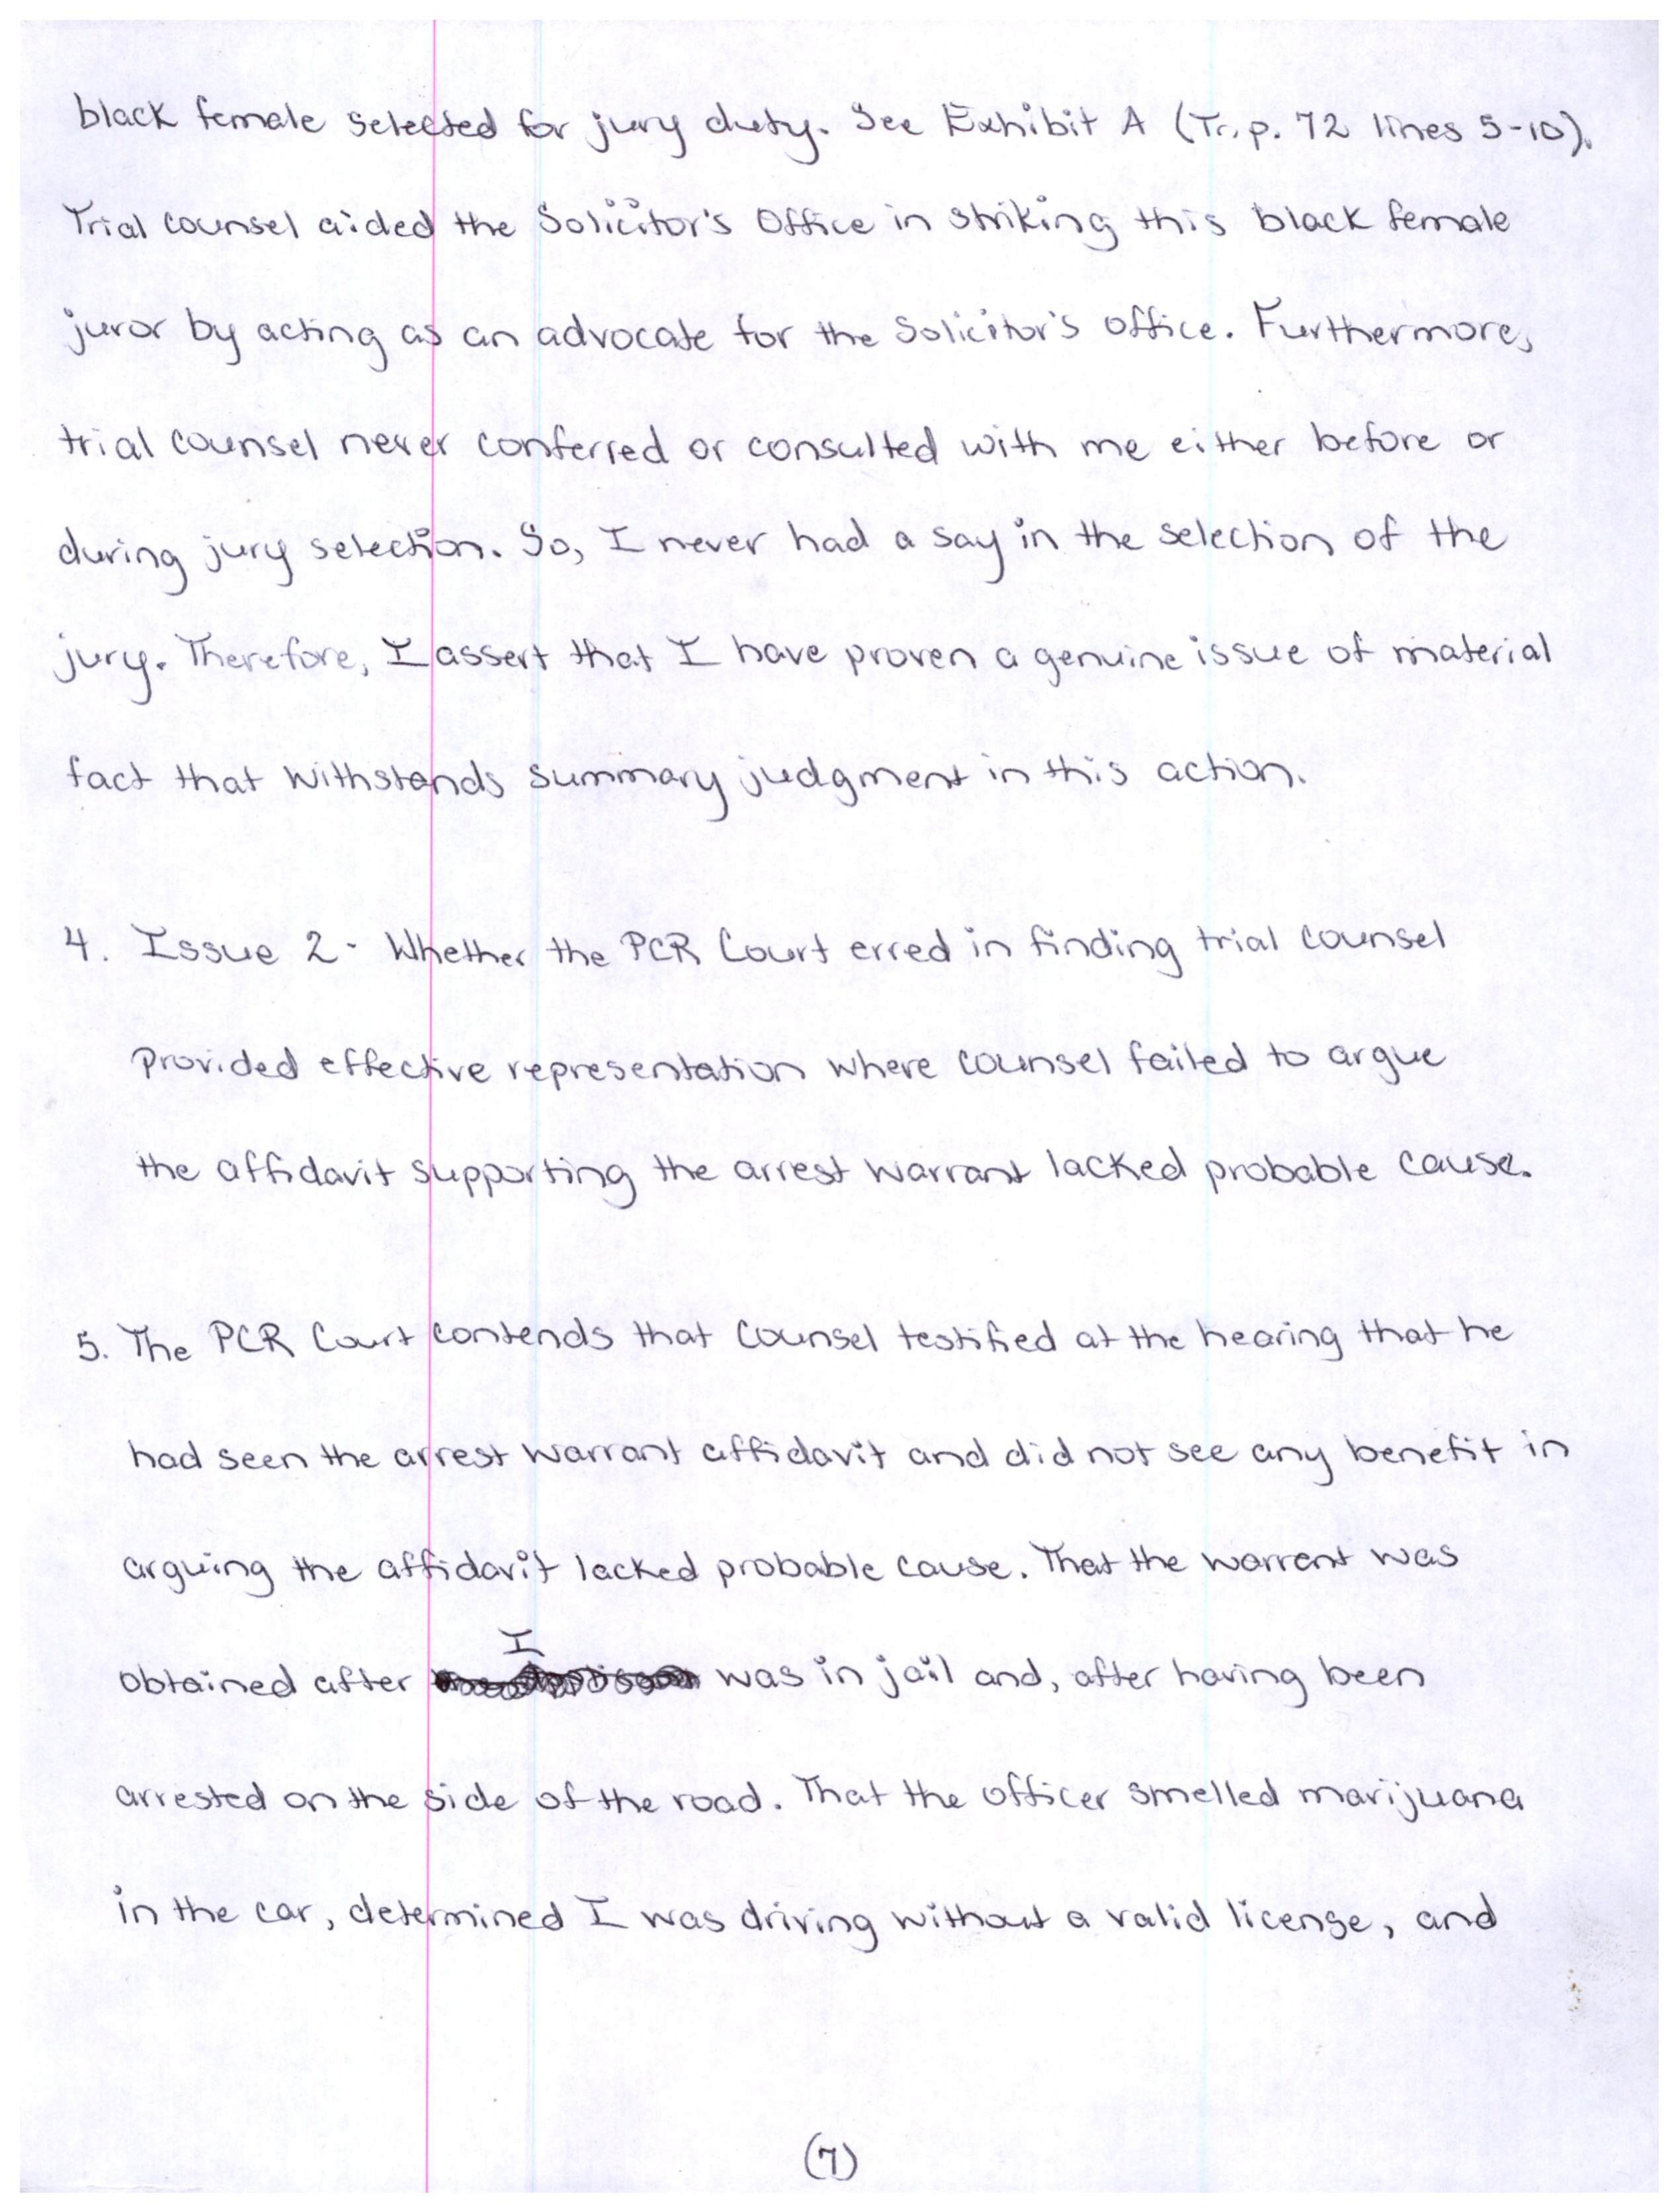 black female selected for jury duty. See Exhibit A (Tr. p. 72 lines 5-10).
Trial counsel aided the Solicitor's Office in striking this black female
juror by acting as an advocate for the Solicitor's office. Furthermore,
trial counsel never conferred or consulted with me either before or
during jury selection. So, I never had a say in the selection of the
jury. Therefore, I assert that I have proven a genuine issue of material
fact that withstands summary judgment in this action.
4. Issue 2 - Whether the PCR Court erred in finding trial counsel
Provided effective representation where counsel failed to argue
the affidavit supporting the arrest warrant lacked probable cause.
5. The PCR Court contends that Counsel testified at the hearing that he
had seen the arrest warrant affidavit and did not see any benefit in
arguing the affidavit lacked probable cause. That the warrant was
obtained after I was in jail and, after having been
arrested on the side of the road. That the officer smelled marijuana
in the car, determined I was driving without a valid license, and
(7)